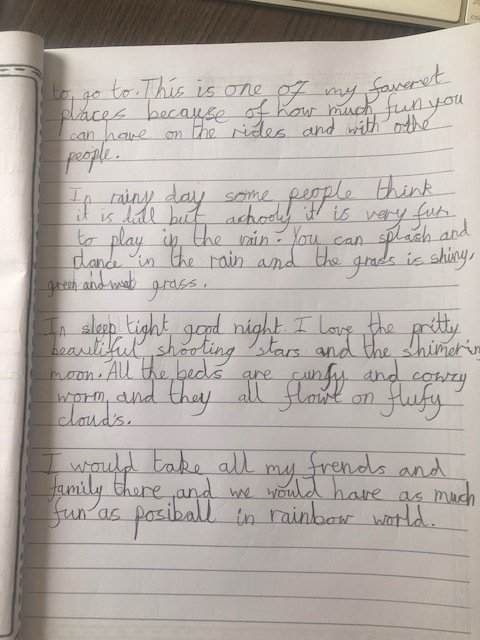 to go to. This is one of my faveret
places because of how much fun you
can have on the rides and with othe
people.
In rainy day some people think
it is dull but achooly it is very fun
to play in the rain. You can splash and
dance in the rain and the grass is shiny,
green and wet grass.
In sleep tight good night. I love the pritty
beautiful shooting stars and the shimerin
moon. All the beds are cunfy and cowzy
worm, and they all flowt on flufy
clouds.
I would take all my frends and
family there, and we would have as much
fun as posiball in rainbow world.